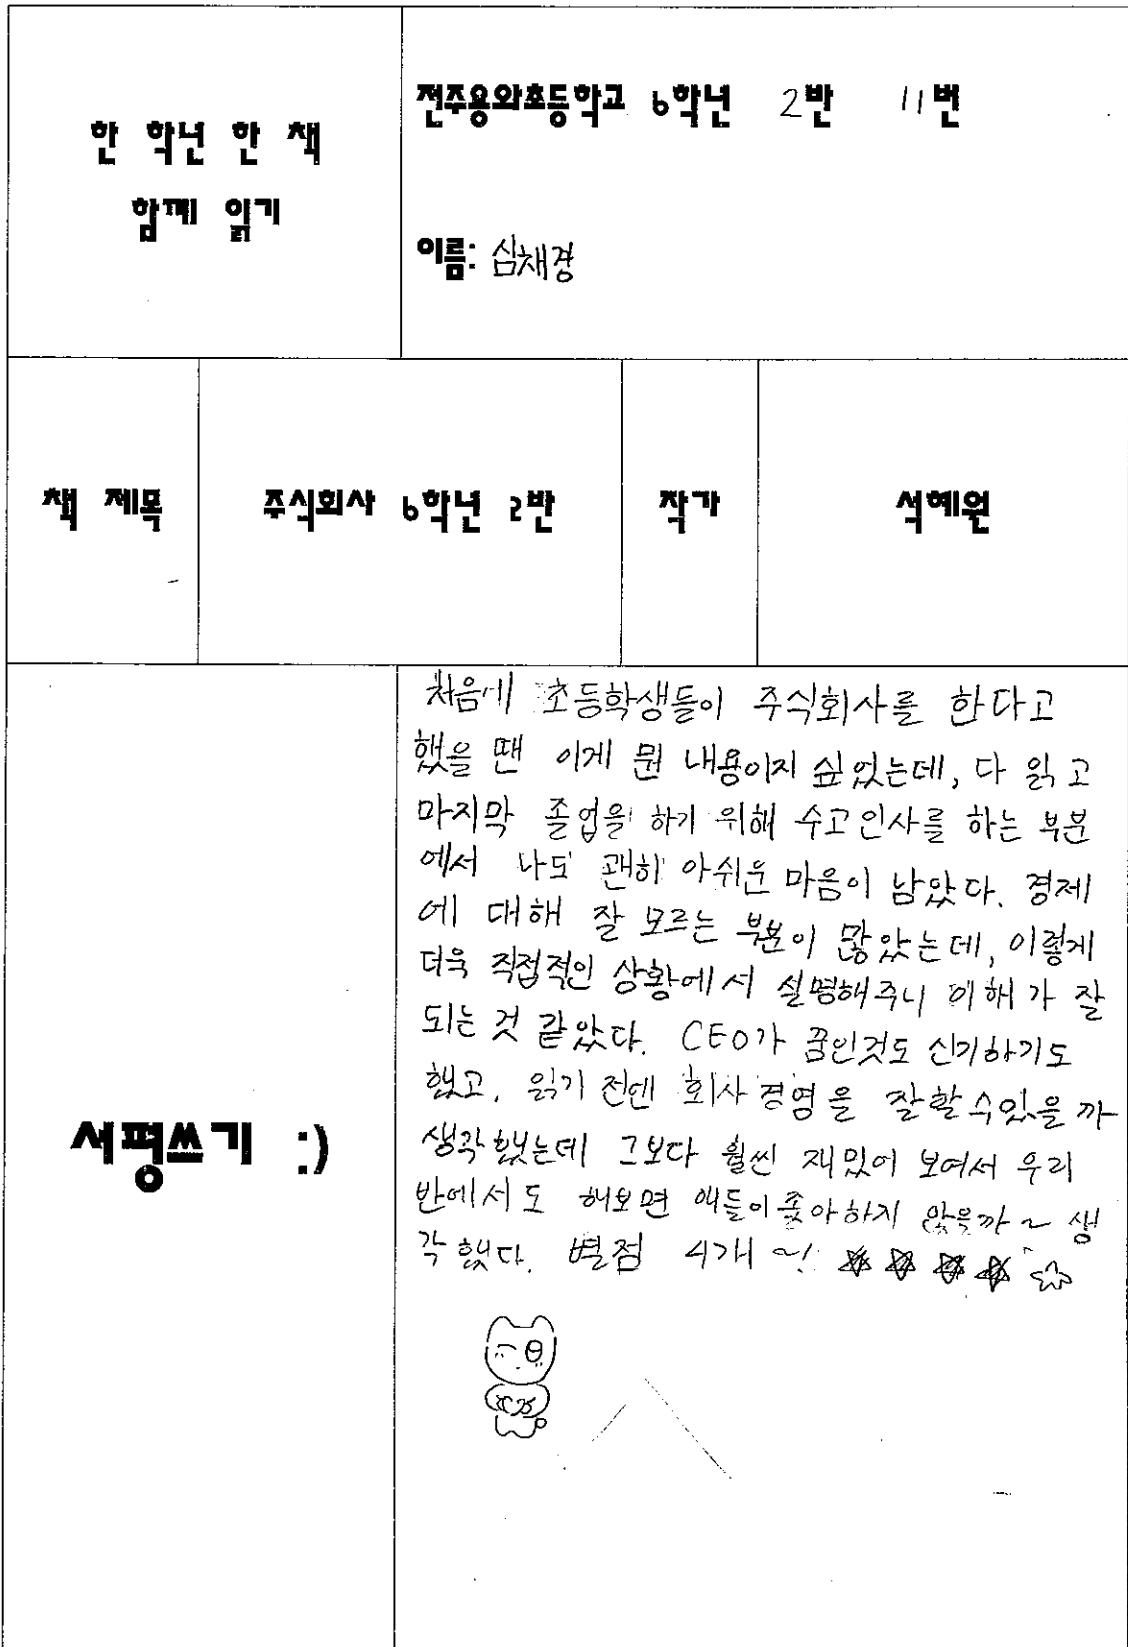 한 학년 한 책
함께 읽기
전주용와초등학교 6학년 2반 11번
이름: 심채경
책 제목
주식회사 6학년 2반
작가
석혜원
서평쓰기 :)
처음에 초등학생들이 주식회사를 한다고
했을 땐 이게 뭔 내용이지 싶었는데, 다 읽고
마지막 졸업을 하기 위해 수고인사를 하는 부분
에서 나도 괜히 아쉬운 마음이 남았다. 경제
에 대해 잘 모르는 부분이 많았는데, 이렇게
더욱 직접적인 상황에서 설명해주니 이해가 잘
되는 것 같았다. CEO가 꿈인것도 신기하기도
했고, 읽기 전엔 회사 경영을 잘할 수있을까
생각했는데 그보다 훨씬 재밌어 보여서 우리
반에서도 해보면 애들이 좋아하지 않을까~ 생
각했다. 별점 4개~! ★★★★☆